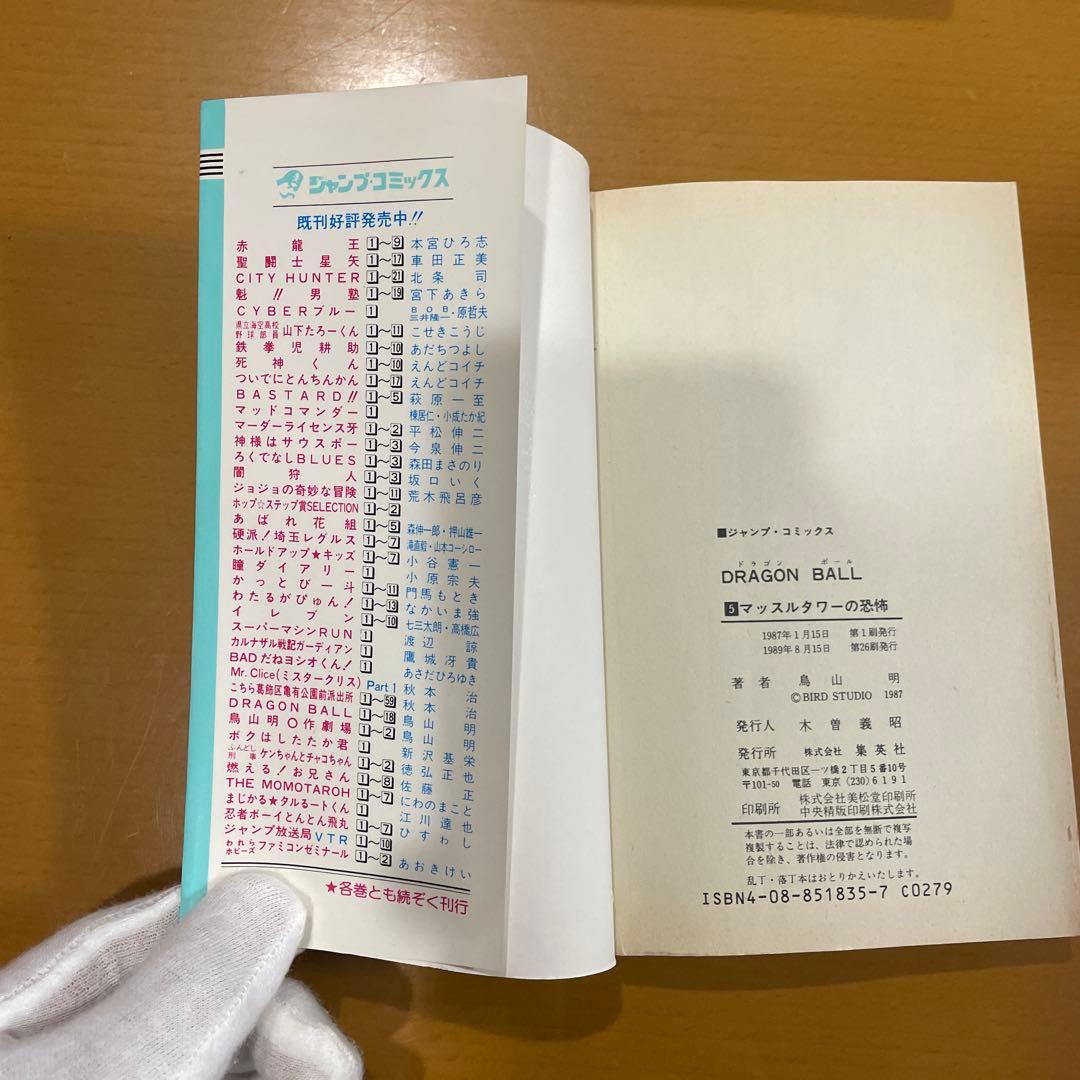 ジャンプ・コミックス
既刊好評発売中!!
赤龍王 1〜9 本宮ひろ志
聖闘士星矢 1〜17 車田正美
CITY HUNTER 1〜21 北条司
魁!!男塾 1〜19 宮下あきら
CYBERブルー 1 BOB・三井隆一・原哲夫
県立海空高校野球部員山下たろーくん 1〜11 こせきこうじ
鉄拳児耕助 1〜10 あだちつよし
死神くん 1〜10 えんどコイチ
ついでにとんちんかん 1〜17 えんどコイチ
BASTARD!! 1〜5 萩原一至
マッドコマンダー 1 棟居仁・小成たか紀
マーダーライセンス牙 1〜2 平松伸二
神様はサウスポー 1〜3 今泉伸二
ろくでなしBLUES 1〜3 森田まさのり
闇狩人 1〜3 坂口いく
ジョジョの奇妙な冒険 1〜11 荒木飛呂彦
ホップ☆ステップ賞SELECTION 1〜2
あばれ花組 1〜5 森伸一郎・押山雄一
硬派!埼玉レグルス 1〜7 滝直毅・山本コーシロー
ホールドアップ★キッズ 1〜7 小谷憲一
瞳ダイアリー 1 小原宗夫
かっとび一斗 1〜11 門馬もとき
わたるがぴゅん! 1〜13 なかいま強
イレブン 1〜10 七三太朗・高橋広
スーパーマシンRUN 1 渡辺諒
カルナザル戦記ガーディアン 1 鷹城冴貴
BADだねヨシオくん! 1 あさだひろゆき
Mr.Clice(ミスタークリス) Part 1 秋本治
こちら葛飾区亀有公園前派出所 1〜59 秋本治
DRAGON BALL 1〜18 鳥山明
鳥山明○作劇場 1〜2 鳥山明
ボクはしたたか君 1 新沢基栄
ふんどし刑事ケンちゃんとチャコちゃん 1〜2 徳弘正也
燃える!お兄さん 1〜8 佐藤正
THE MOMOTAROH 1〜7 にわのまこと
まじかる★タルるートくん 1 江川達也
忍者ボーイとんとん飛丸 1〜7 ひすわし
ジャンプ放送局VTR 1〜10
われらホビーズファミコンゼミナール 1〜2 あおきけい
★各巻とも続ぞく刊行
■ジャンプ・コミックス
ドラゴン ボール
DRAGON BALL
5マッスルタワーの恐怖
1987年1月15日 第1刷発行
1989年8月15日 第26刷発行
著者 鳥山明
©BIRD STUDIO 1987
発行人 木曽義昭
発行所 株式会社 集英社
東京都千代田区一ツ橋2丁目5番10号
〒101-50 電話 東京(230)6191
印刷所 株式会社美松堂印刷所
中央精版印刷株式会社
本書の一部あるいは全部を無断で複写
複製することは、法律で認められた場
合を除き、著作権の侵害となります。
乱丁・落丁本はおとりかえいたします。
ISBN4-08-851835-7 C0279